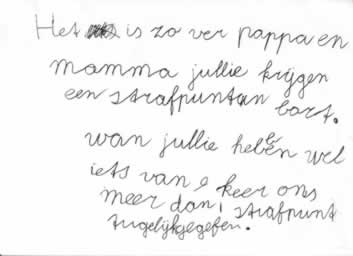 Het is zo ver pappa en
mamma jullie krijgen
een strafpuntan bart.
wan jullie hebben wel
iets van keer ons
meer dan 1 strafpunt
tugelijkgegefen.